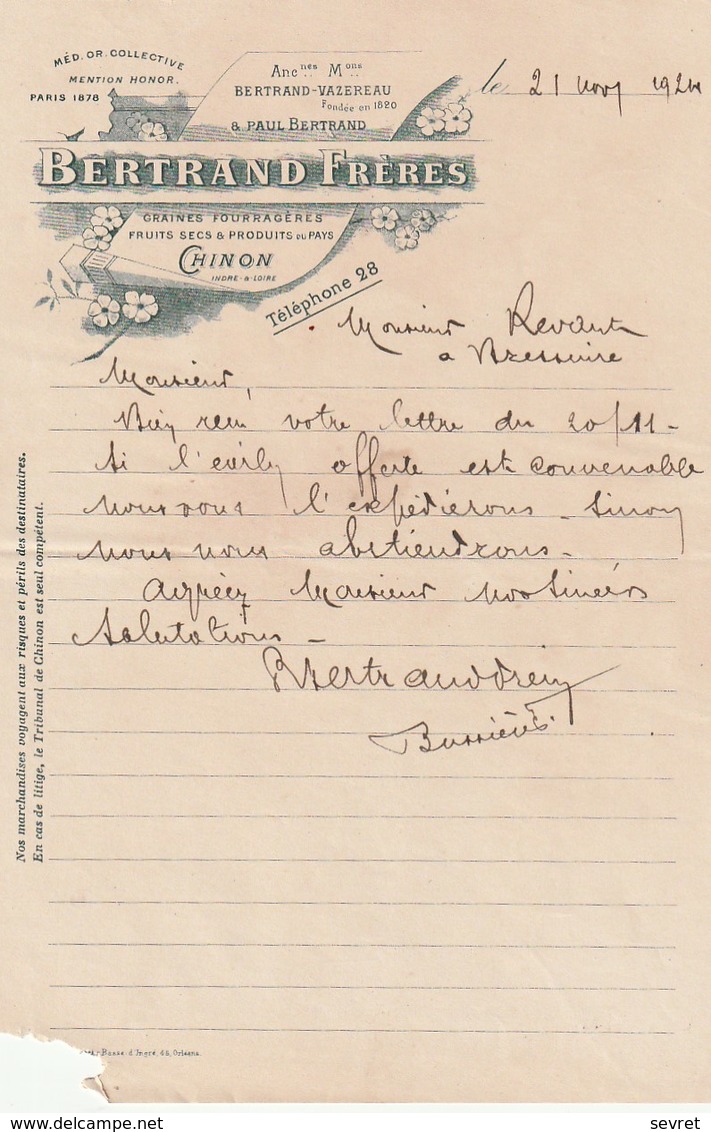 MÉD. OR. COLLECTIVE
MENTION HONOR.
PARIS 1878
Anc.nes M.ons
BERTRAND-VAZEREAU
Fondée en 1820
& PAUL BERTRAND
BERTRAND FRÈRES
GRAINES FOURRAGÈRES
FRUITS SECS & PRODUITS DU PAYS
CHINON
INDRE-&-LOIRE
Téléphone 28
le 21 nov 1924
Monsieur
a Bressuire
Monsieur,
Bien reçu votre lettre du 20/11-
Si l' offerte est convenable
nous vous l'expédierons - sinon
nous nous abstiendrons -
Agréez Monsieur nos sincères
salutations -
Bertrand
Nos marchandises voyagent aux risques et périls des destinataires.
En cas de litige, le Tribunal de Chinon est seul compétent.
Basse-d'Ingré, 45, Orléans.
sevret